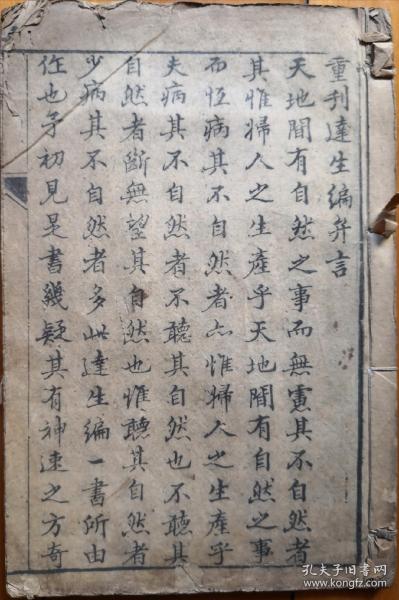 重刊達生編弁言
天地間有自然之事而無慮其不自然者
其惟婦人之生產乎天地間有自然之事
而恆病其不自然者亦惟婦人之生產乎
夫病其不自然者不聽其自然也不聽其
自然者斷無望其自然也惟聽其自然者
少病其不自然者多此達生編一書所由
作也予初見是書幾疑其有神速之方奇
孔夫子旧书网
www.kongfz.com